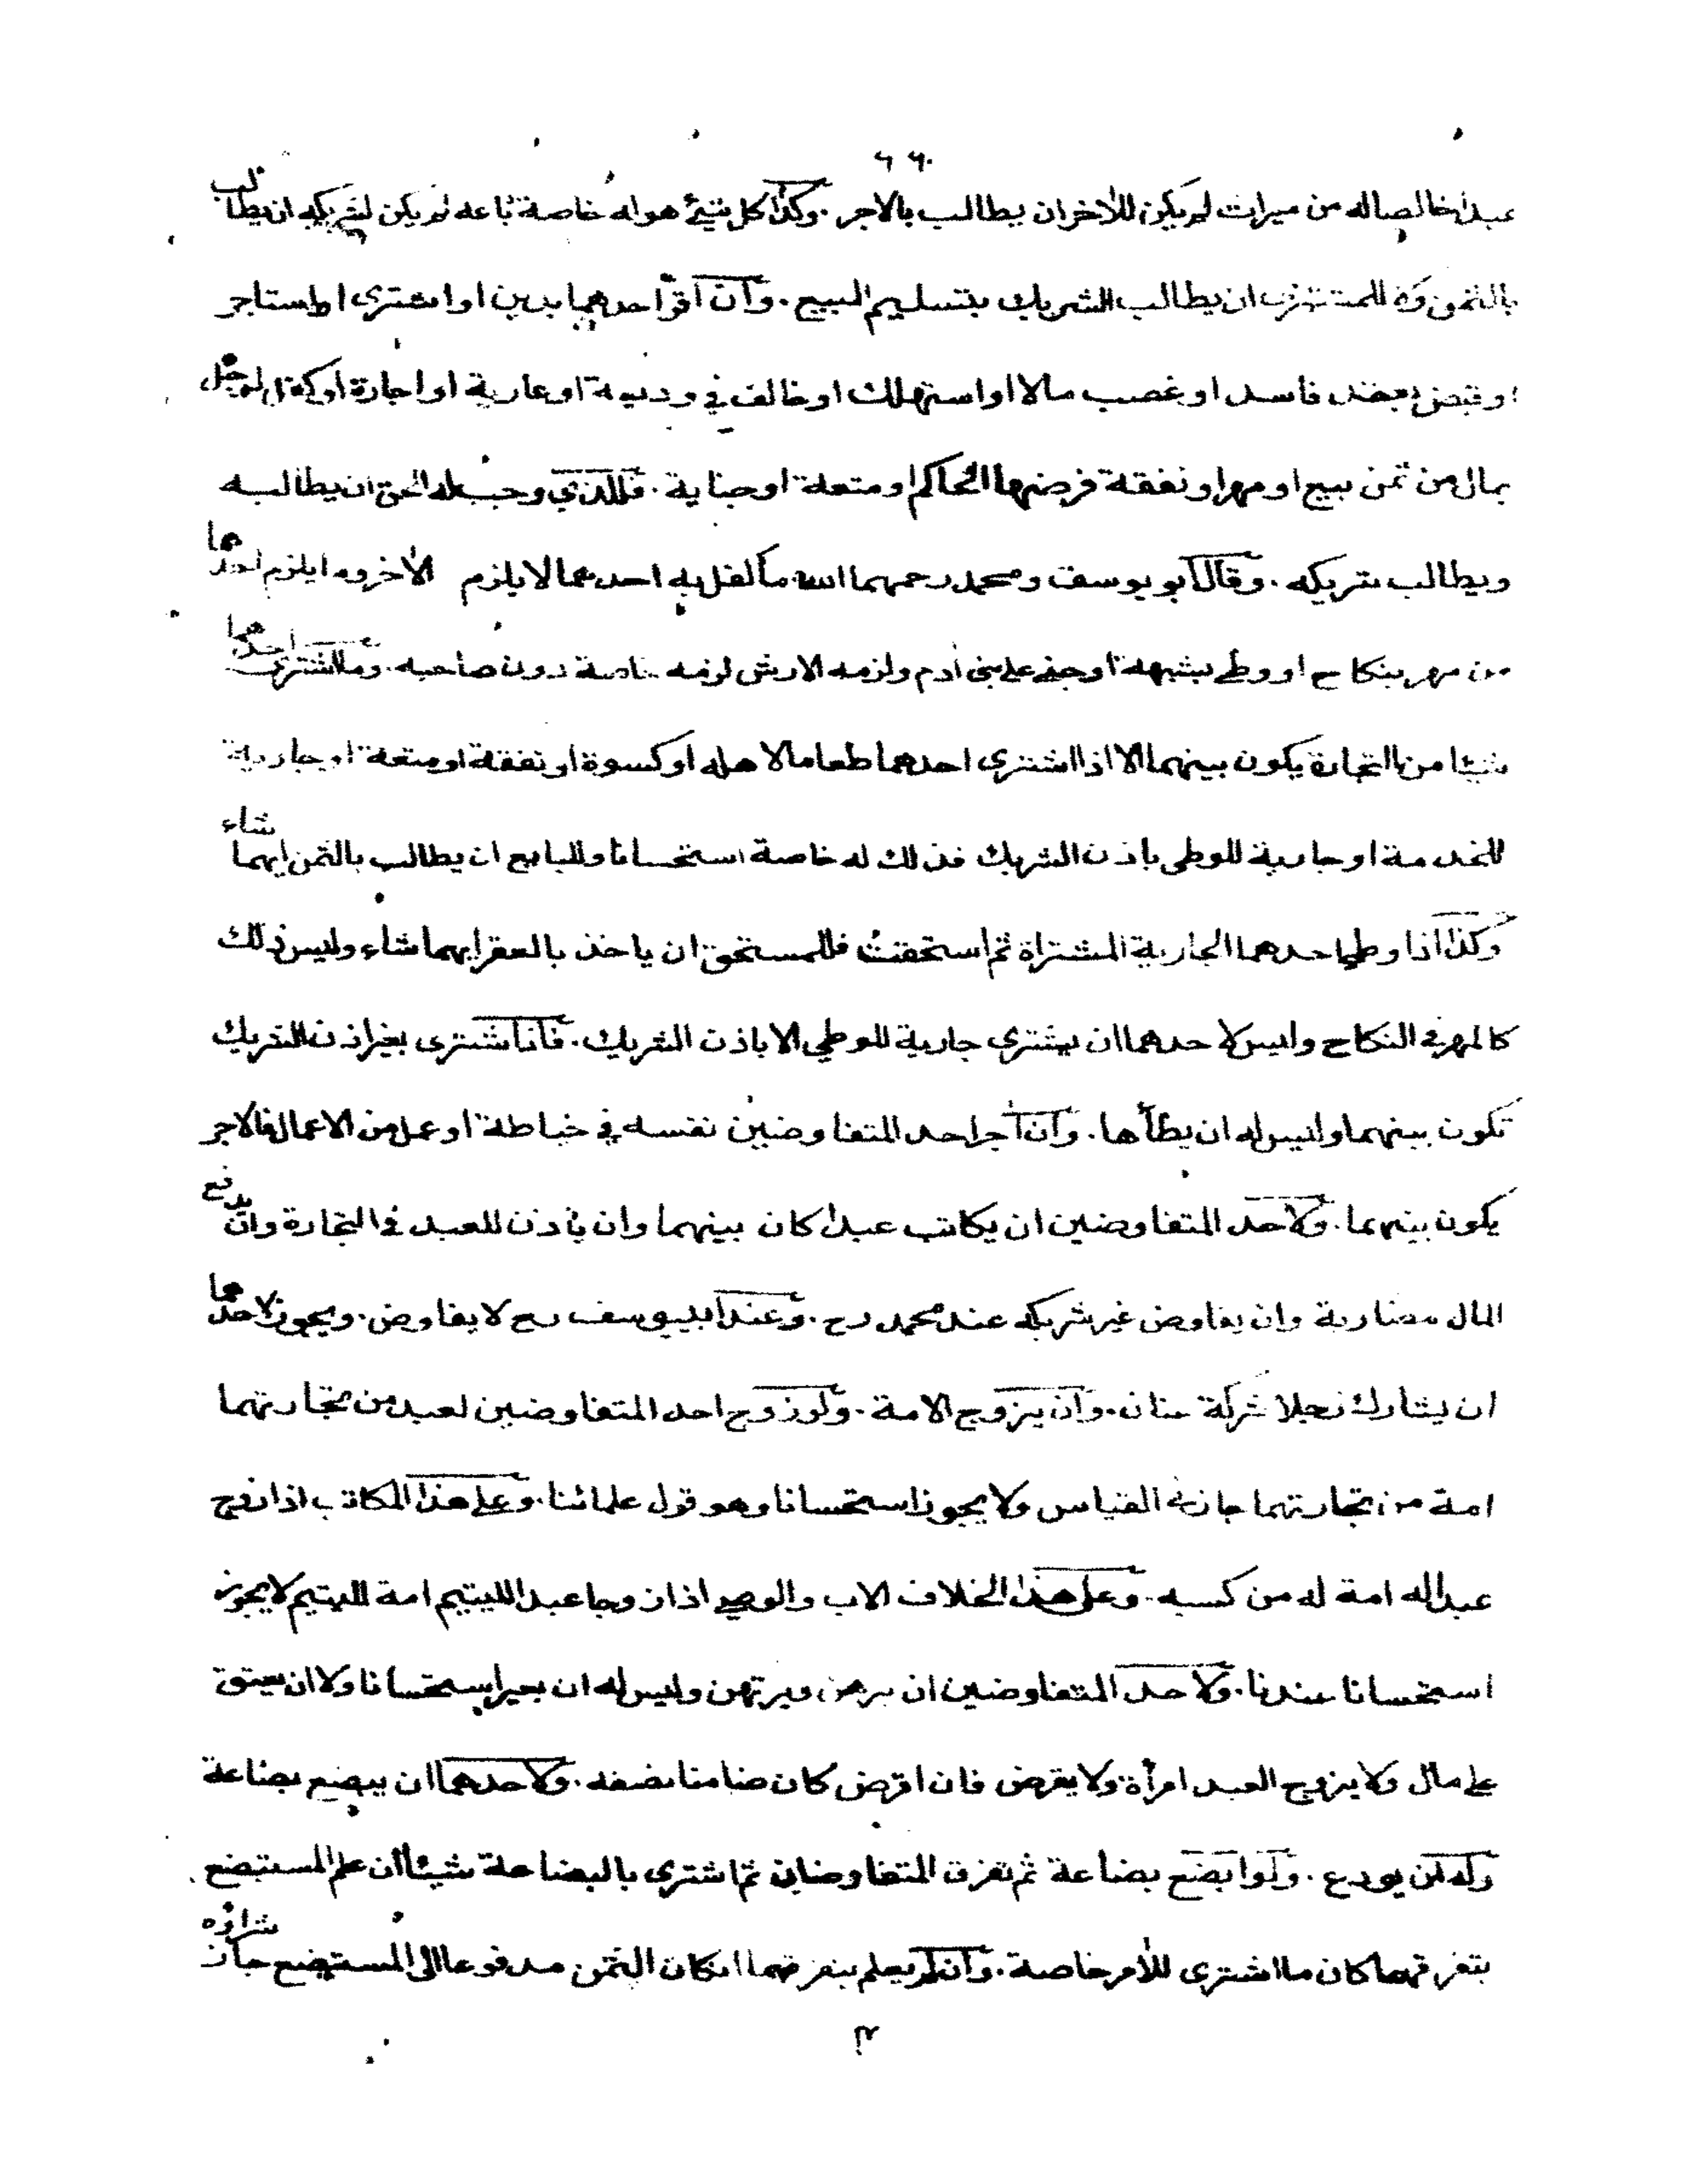 ٦٦٠
عبدا خالصا له من ميراث لم يكن للآخر ان يطالب بالاجر . وكذا كل شيئ هو له خاصة باعه لم يكن لشريكه ان يطالب
بالثمن ولا للمشتري ان يطالب الشريك بتسليم المبيع . وان اقرّ احدهما بدين او اشترى او استاجر
او قبض بعقد فاسد او غصب مالا او استهلك او خالف في وديعة او عارية او اجارة او كفل لرجل
بمال من ثمن بيع او مهر او نفقة فرضها الحاكم او متعة او جناية . فللذي وجب له الحق ان يطالبه
ويطالب شريكه . وقال ابو يوسف ومحمد رحمهما الله ما كفل به احدهما لا يلزم الآخر وما يلزم احدهما
من مهر بنكاح او وطي بشبهة او جنى على بني آدم ولزمه الارش لزمه خاصة دون صاحبه . وما اشترى احدهما
شيئا من التجارة يكون بينهما الا اذا اشترى احدهما طعاما لاهله او كسوة او نفقة او متعة او جارية
للخدمة او جارية للوطي باذن الشريك فذلك له خاصة استحسانا وللبايع ان يطالب بالثمن ايهما شاء
وكذا اذا وطي احدهما الجارية المشتراة ثم استحقت فللمستحق ان ياخذ بالعقر ايهما شاء وليس ذلك
كالمهر في النكاح وليس لاحدهما ان يشتري جارية للوطي الا باذن الشريك . فان اشترى بغير اذن الشريك
تكون بينهما وليس له ان يطأها . وان آجر احد المتفاوضين نفسه في خياطة او عمل من الاعمال فالاجر
يكون بينهما . ولاحد المتفاوضين ان يكاتب عبدا كان بينهما وان يأذن للعبد في التجارة وان يدفع
المال مضاربة وان يفاوض غير شريكه عند محمد رح . وعند ابي يوسف رح لا يفاوض . ويجوز لاحدهما
ان يشارك رجلا شركة عنان . وان يزوج الامة . ولو زوج احد المتفاوضين لعبد من تجارتهما
امة من تجارتهما جاز في القياس ولا يجوز استحسانا وهو قول علمائنا . وعلى هذا المكاتب اذا زوج
عبدا له امة له من كسبه . وعلى هذا الخلاف الاب والوصي اذا زوجا عبد اليتيم امة لليتيم لا يجوز
استحسانا عندنا . ولاحد المتفاوضين ان يرهن ويرتهن وليس له ان استحسانا ولا ان يعتق
على مال ولا يزوج العبد امرأة ولا يقرض فان اقرض كان ضامنا نصفه . ولاحدهما ان يبضع بضاعة
وله ان يودع . ولو ابضع بضاعة ثم تفرق المتفاوضان ثم اشترى بالبضاعة شيئا ان علم المستبضع
بتفرقهما كان ما اشترى للآمر خاصة . وان لم يعلم بتفرقهما ان كان الثمن مدفوعا الى المستبضع جاز شراؤه